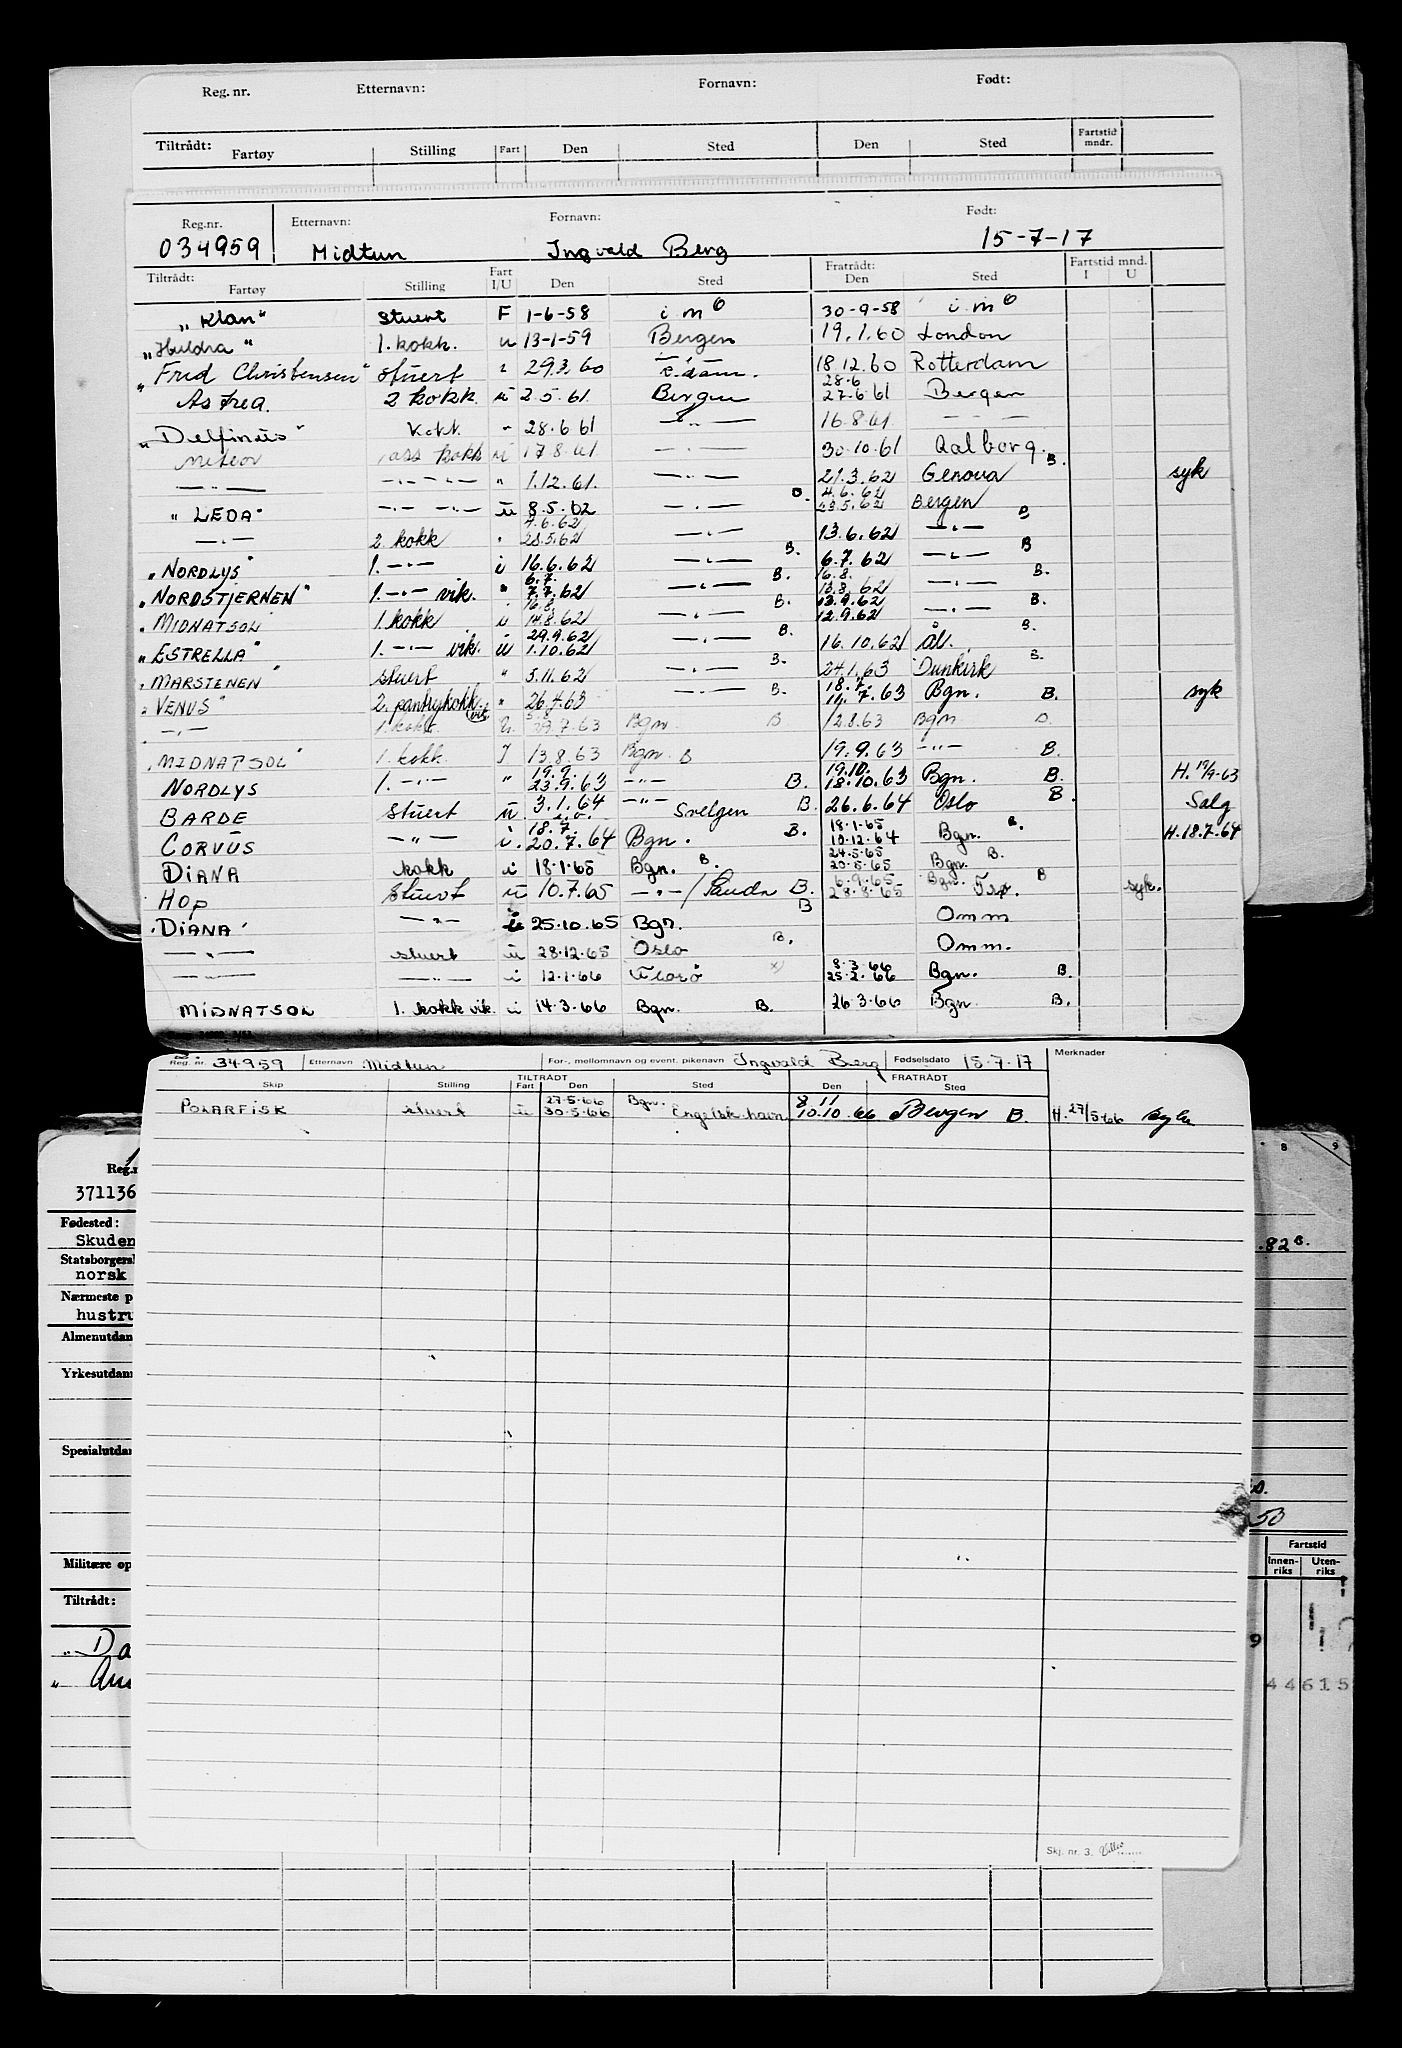 Reg. nr. Etternavn: Fornavn: Født:
Tiltrådt: Fartøy Stilling Fart Den Sted Den Sted Fartstid mndr.
Reg.nr. Etternavn: Fornavn: Født:
034959 Midtun Ingvald Berg 15-7-17
Tiltrådt: Fratrådt: Fartstid mnd.
Fartøy Stilling Fart I/U Den Sted Den Sted I U
"Klan" stuert F 1-6-58 i m 30-9-58 i m
"Huldra" 1. kokk. u 13-1-59 Bergen 19.1.60 London
"Fred Christensen" stuert " 29.3.60 R.dam. 18.12.60 Rotterdam
Astrea. 2 kokk. u 2.5.61. Bergen 28.6 27.6.61 Bergen
"Delfinus" kokk " 28.6.61 —"— 16.8.61 — — —
Meteor ass kokk u 17.8.61 —.— 30.10.61 Aalborg.
—"— —.— —.— " 1.12.61. —.— 21.3.62 Genova B. syk
"LEDA" —.— —.— u 8.5.62 —.— B. 4.6.62 23.5.62 Bergen
—.— 2. kokk " 4.6.62 28.5.62 —.— 13.6.62 —.— B
"NORDLYS" 1. —.— i 16.6.62 —.— B. 6.7.62 —.— B
"NORDSTJERNEN" 1. —.— vik. " 6.7. 7.7.62 —.— B. 16.8. 13.8.62 —.— B.
"MIDNATSOL 1. kokk i 16.8. 14.8.62 —.— B. 13.9.62 12.9.62 —.— B.
"ESTRELLA" 1. —.— vik. u 29.9.62 1.10.62 —.— B. 16.10.62 Ål. B.
"MARSTENEN" stuert " 5.11.62 —.— B. 24.1.63 Dunkirk B.
"VENUS" 2. pantrykokk. " 26.4.63 —.— B. 18.7. 16.7.63 Bgn. B. syk
—.— 1. kokk vik. u. 29.7.63 Bgn. B 12.8.63 Bgn B.
"MIDNATSOL" 1. kokk. I 13.8.63 Bgn. B 19.9.63 —"— B.
NORDLYS 1. —.— " 19.9. 23.9.63 —"— B. 19.10. 18.10.63 Bgn. B. H. 19/9-63
BARDE stuert u. 3.1.64 —"— Svelgen B. 26.6.64 Oslo B. Salg
CORVUS —"— i. 18.7. 20.7.64 Bgn. B. 18.1.65 10.12.64 Bgn. B. H. 18.7.64
DIANA kokk i 18.1.65 Bgn. B. 24.5.65 20.5.65 Bgn. B.
Hop stuert u 10.7.65 —"— / Sauda B. 6.9.65 28.8.65 Bgn. B syk.
"DIANA" —"— i 25.10.65 Bgn. B Omm
—"— stuert u 28.12.65 Oslo B. Omm.
—"— —"— i 12.1.66 Florø x) 8.3.66 25.2.66 Bgn. B.
MIDNATSOL 1. kokk vik. i 14.3.66 Bgn. B. 26.3.66 Bgn. B.
Reg. nr. 34959 Etternavn Midtun For-, mellomnavn og event. pikenavn Ingvald Berg Fødselsdato 15.7.17 Merknader
TILTRÅDT FRATRÅDT
Skip Stilling Fart Den Sted Den Sted
POLARFISK stuert u 27.5.66 30.5.66 Bgn. Engelsk havn 8.11 10.10.66 Bergen B. H. 27/5-66 syk
Skj. nr. 3.
Reg.n
371136
Fødested:
Skuden
Statsborgers
norsk
Nærmeste p
hustru
Almenutdan
Yrkesutdann
Spesialutdan
Militære op
Tiltrådt:
" Da
8 9
.82 B.
50
Fartstid
Innen-riks Uten-riks
9
44615